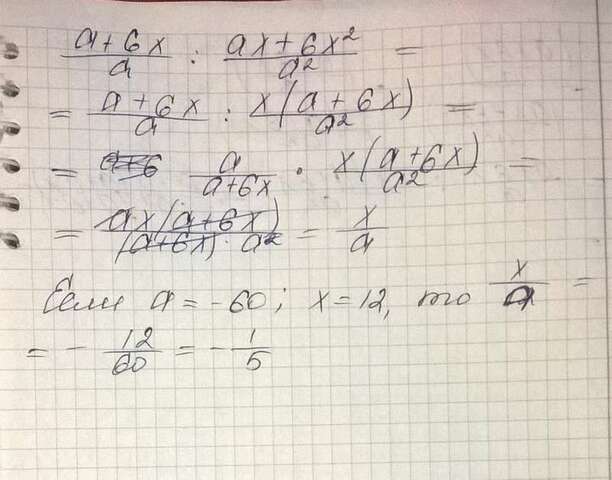 (a+6x)/a : (ax+6x²)/a² =
= (a+6x)/a : x(a+6x)/a² =
= a+6 a/(a+6x) · x(a+6x)/a² =
= ax(a+6x)/((a+6x)·a²) = x/a
Если a = -60; x = 12, то x/a =
= - 12/60 = - 1/5